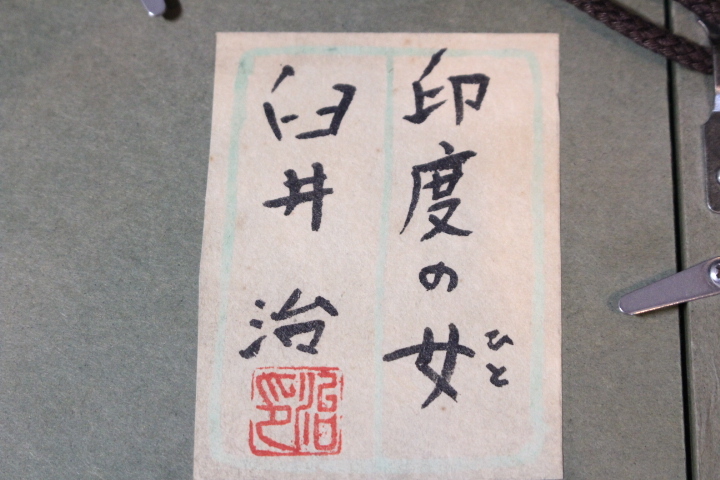 印度の女
ひと
臼井治
治印